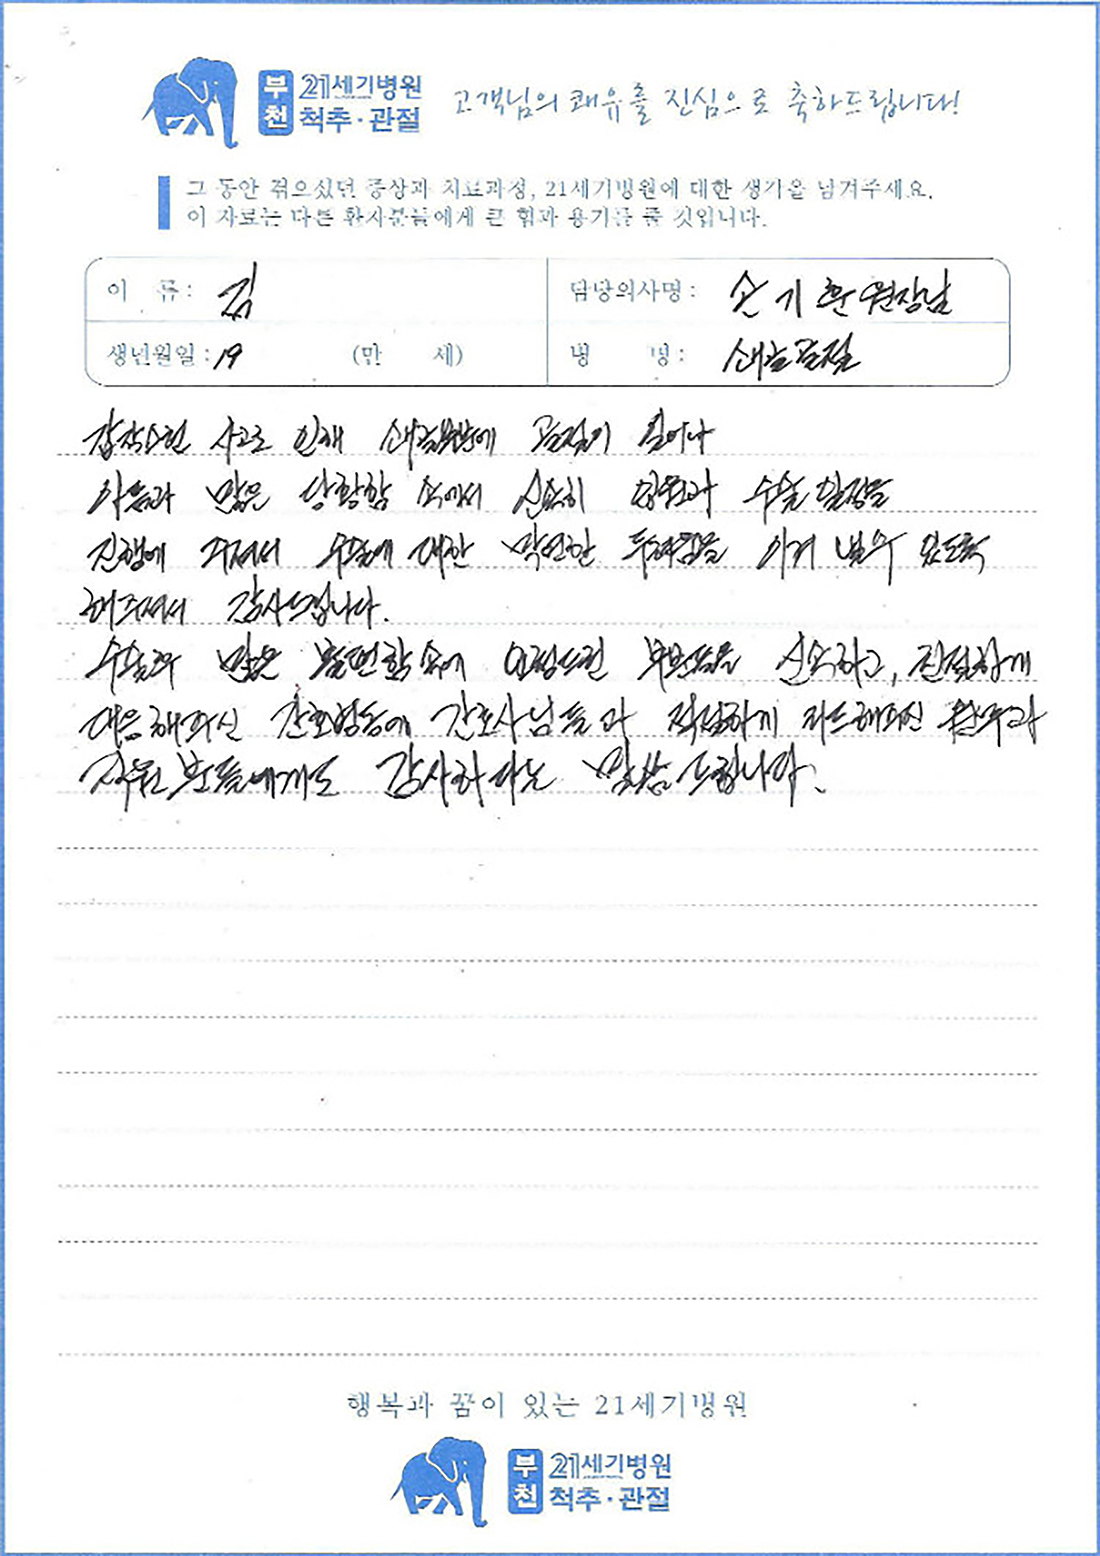 부천 21세기병원 척추·관절
고객님의 쾌유를 진심으로 축하드립니다!
그 동안 겪으셨던 증상과 치료과정, 21세기병원에 대한 생각을 남겨주세요.
이 자료는 다른 환자분들에게 큰 힘과 용기를 줄 것입니다.
이 름 : 김
담당의사명 : 손기훈 원장님
생년월일 : 19 (만 세)
병 명 : 쇄골골절
갑작스런 사고로 인해 쇄골부분에 골절이 일어나
아픔과 많은 당황함 속에서 신속히 입원과 수술 일정을
진행해 주셔서 수술에 대한 막연한 두려움을 이겨 낼 수 있도록
해주셔서 감사드립니다.
수술후 많은 불편함 속에 요청드린 부분들을 신속하고, 친절하게
대응해주신 간호병동에 간호사님들과 적절하게 리드해주신
직원분들에게도 감사하다는 말씀 드립니다.
행복과 꿈이 있는 21세기병원
부천 21세기병원 척추·관절